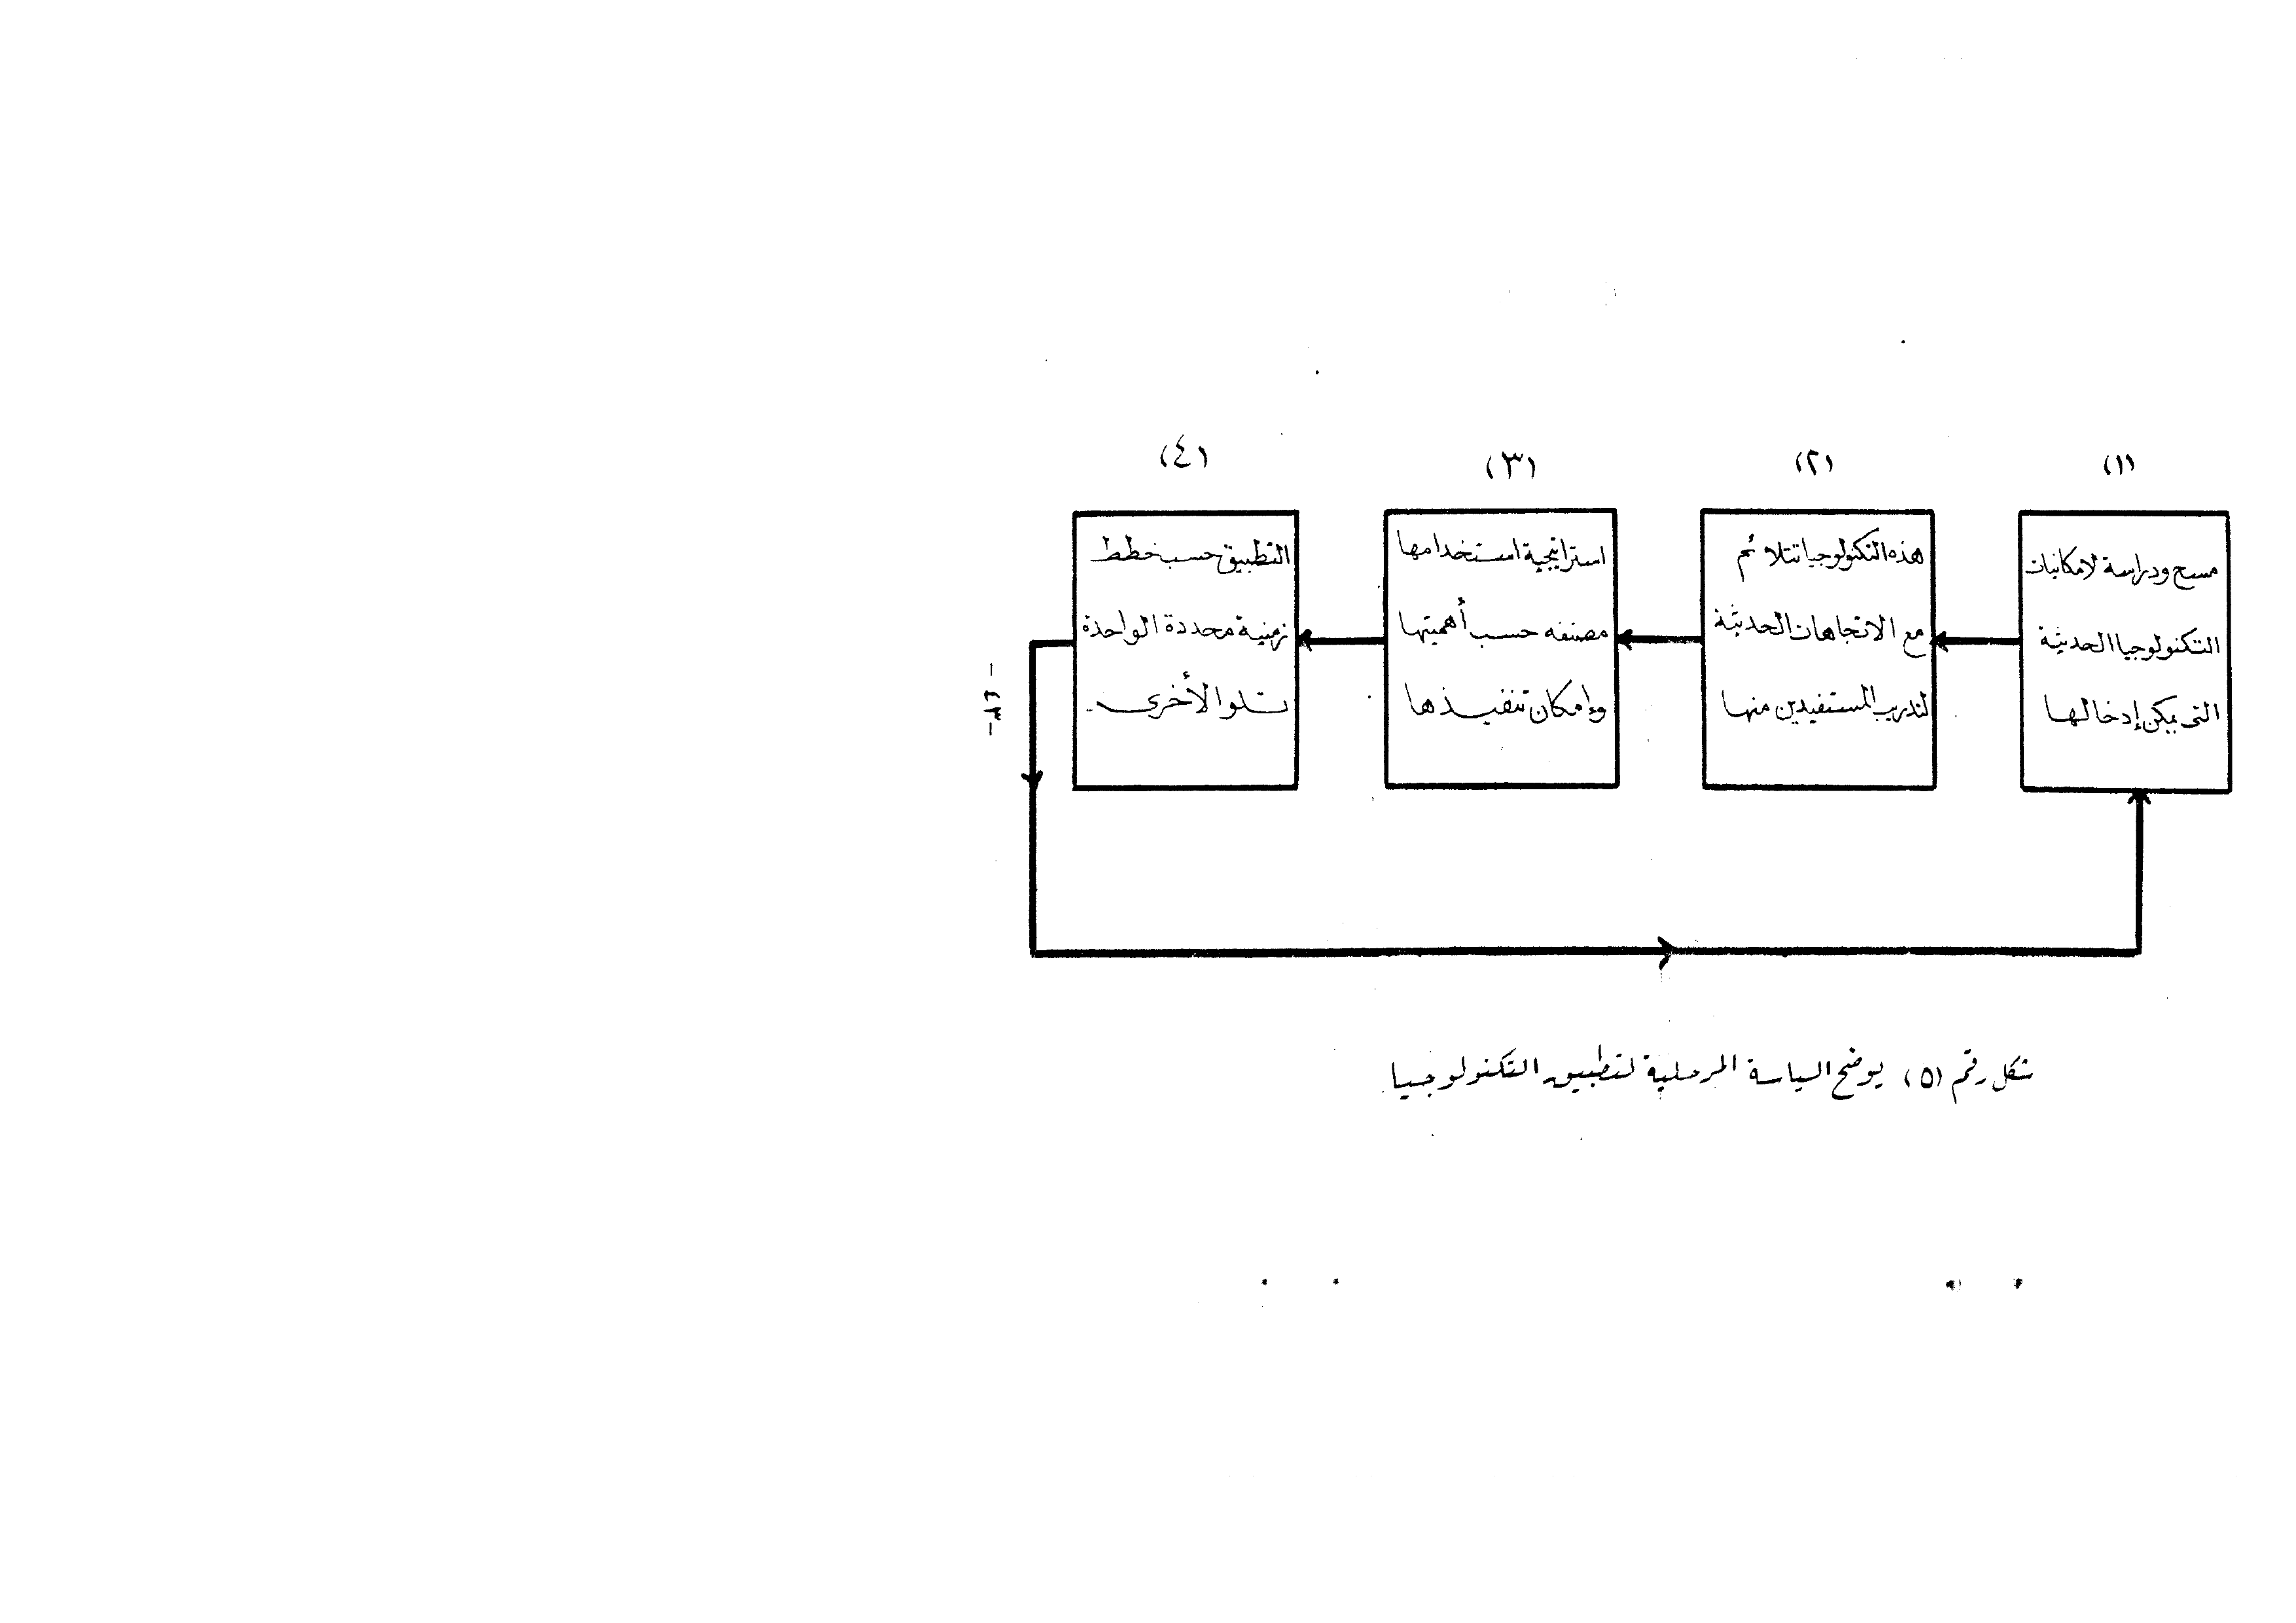 (١)
مسح ودراسة لامكانيات
التكنولوجيا الحديثة
التى يمكن إدخالها
(٢)
هذه التكنولوجيا تتلائم
مع الاتجاهات الحديثة
لتدريب المستفيدين منها
(٣)
استراتيجية استخدامها
مصنفه حسب أهميتها
وإمكان تنفيذها
(٤)
التطبيق حسب خطط
زمنية محددة الواحدة
تلو الأخرى.
شكل رقم (٥) يوضح السياسة المرحلية لتطبيق التكنولوجيا